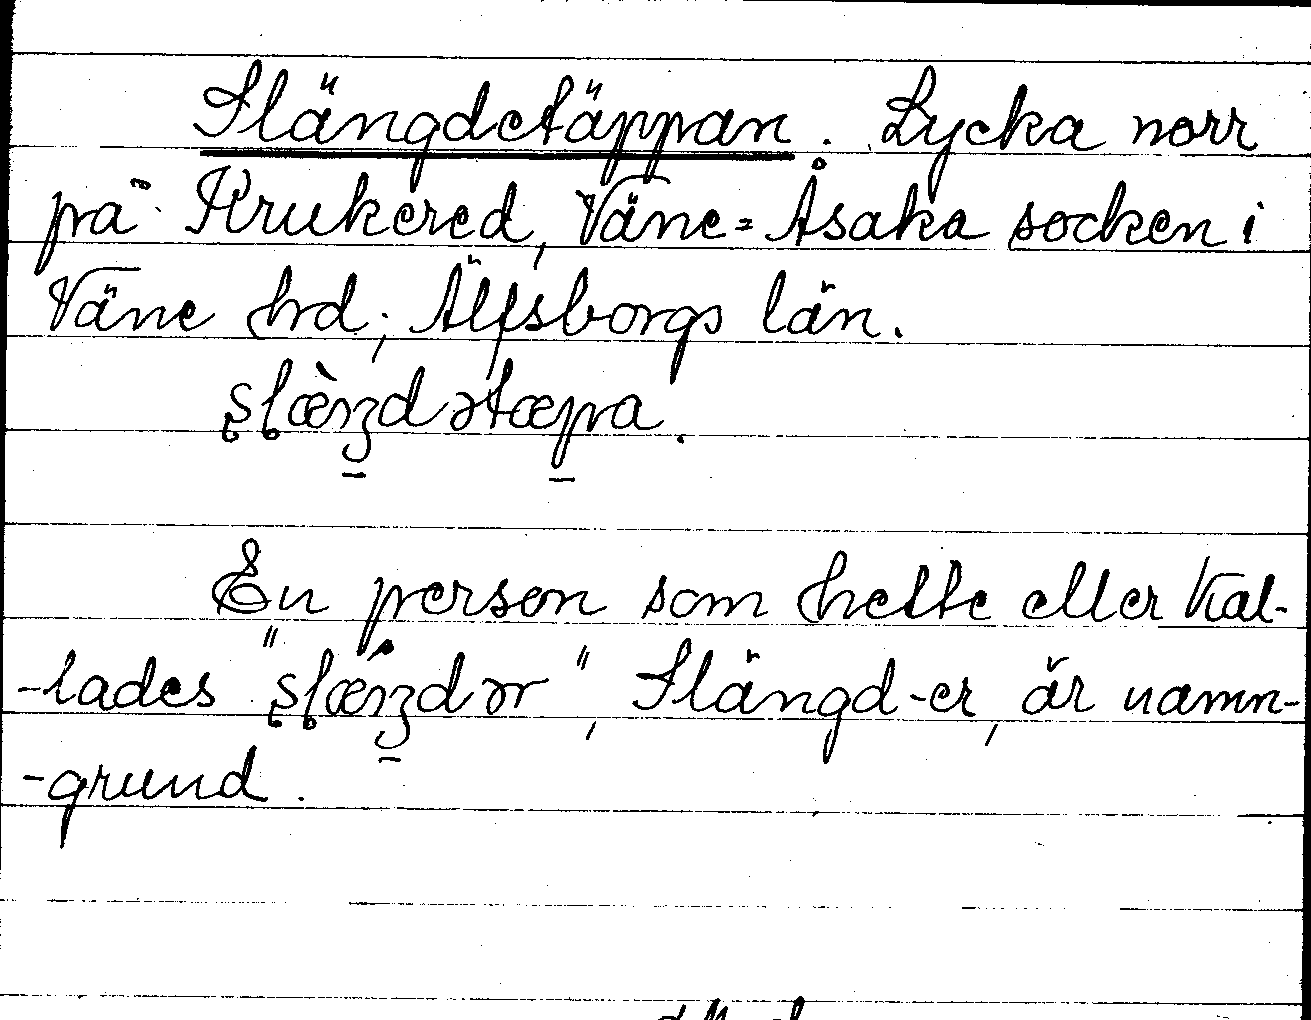 Slängdetäppan. Lycka norr
på Krukered, Väne=Åsaka socken i
Väne hrd, Älfsborgs län.
ʂɭæ̀ŋdətæpa.
En person som hette eller kal-
-lades "ʂɭǽŋdər", Slängd-er, är namn-
-grund.